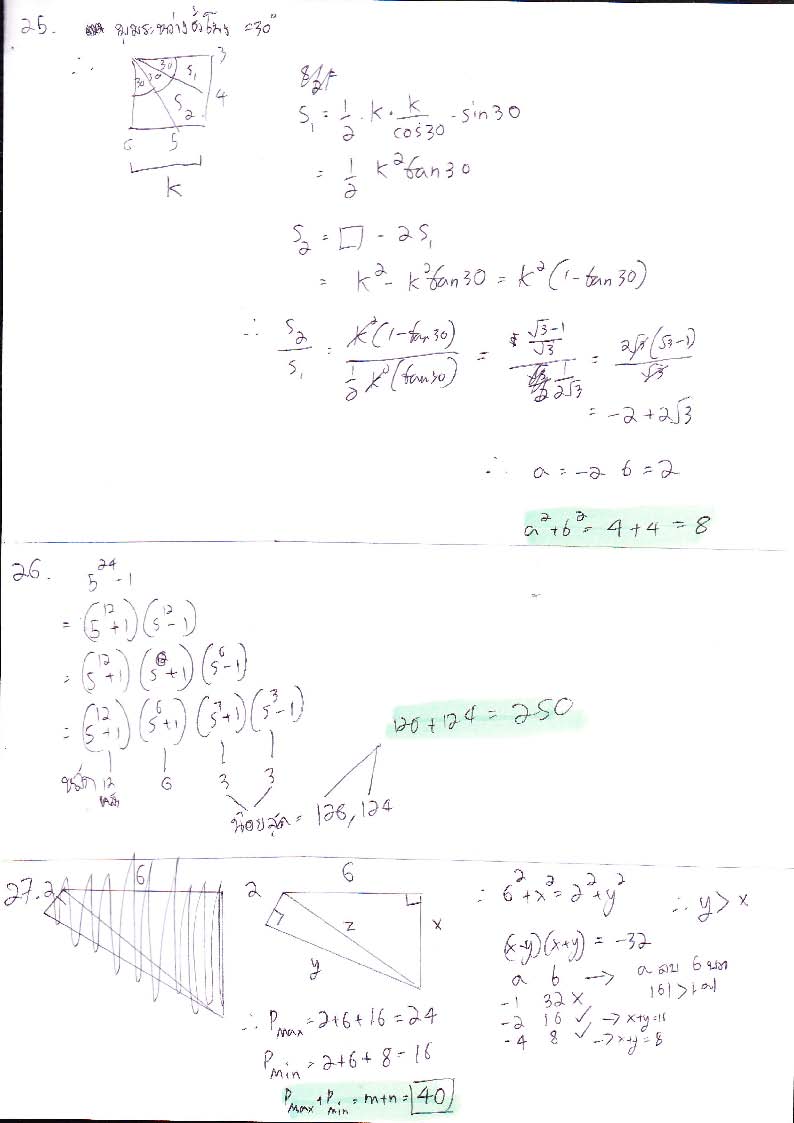 25. มุมระหว่างชั่วโมง = 30°
∴
30 30 30 S₁ S₂ 3 4 5 6
k
S₁ = 1/2 · k · k/cos30 · sin30
= 1/2 k² tan30
S₂ = □ - 2S₁
= k² - k² tan30 = k²(1 - tan30)
∴ S₂/S₁ = k²(1 - tan30) / (1/2 k²(tan30)) = ((√3-1)/√3) / (1/(2√3)) = 2√3(√3-1)/√3
= -2 + 2√3
∴ a = -2 b = 2
a² + b² = 4 + 4 = 8
26. 5²⁴ - 1
= (5¹² + 1)(5¹² - 1)
= (5¹² + 1)(5⁶ + 1)(5⁶ - 1)
= (5¹² + 1)(5⁶ + 1)(5³ + 1)(5³ - 1)
12 6 3 3
น้อยสุด = 126, 124
126 + 124 = 250
27. 2 6
2 6 x y z
∴ 6² + x² = 2² + y² ∴ y > x
(x-y)(x+y) = -32
a b → a ลบ b บวก
|b| > |a|
-1 32 ×
-2 16 ✓ → x+y = 16
-4 8 ✓ → x+y = 8
∴ P max = 2 + 6 + 16 = 24
P min = 2 + 6 + 8 = 16
P max + P min = m + n = 40